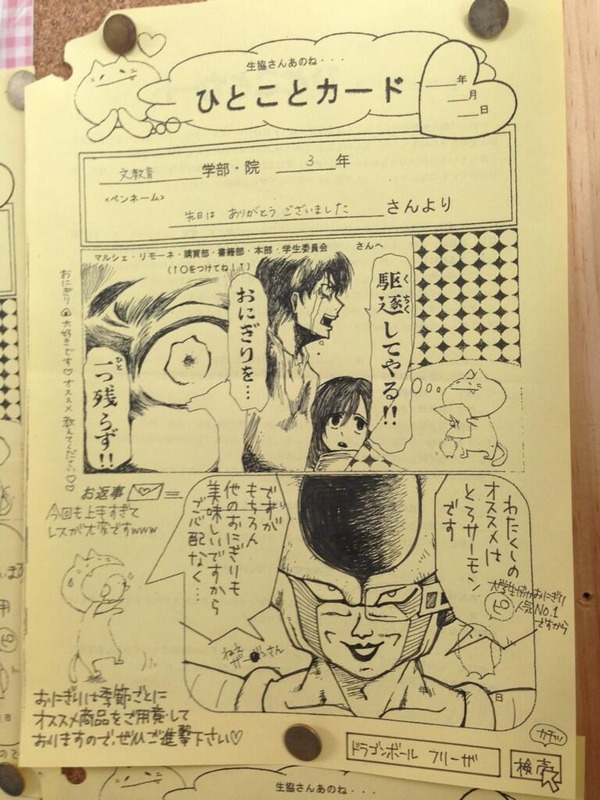 生協さんあのね・・・
ひとことカード
年
月
日
文教育 学部・院 3 年
<ペンネーム>
先日は ありがとう ございました さんより
マルシェ・リモーネ・購買部・書籍部・本部・学生委員会 さんへ
(↑○をつけてね!↑)
駆逐してやる!!
くちく
おにぎりを…
一つ残らず!!
ひと
おにぎり 大好きです♡オススメ 教えてください♡♡
お返事
今回も上手すぎて
レスが大変ですwww
わたくしの
オススメは
とろサーモン
です
ですが
もちろん
他のおにぎりも
美味しいですから
ご心配なく…
おにぎり
人気No.1
ですから
年
日
おにぎりは季節ごとに
オススメ商品をご用意して
おりますので、ぜひご進撃下さい♡
ドラゴンボール フリーザ
検索
カチッ
生協さんあのね・・・